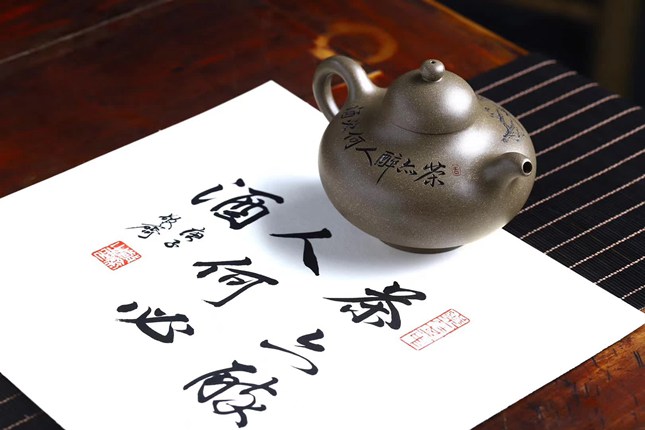 茶亦醉
人何必
酒
庚子
茶亦醉人何必酒